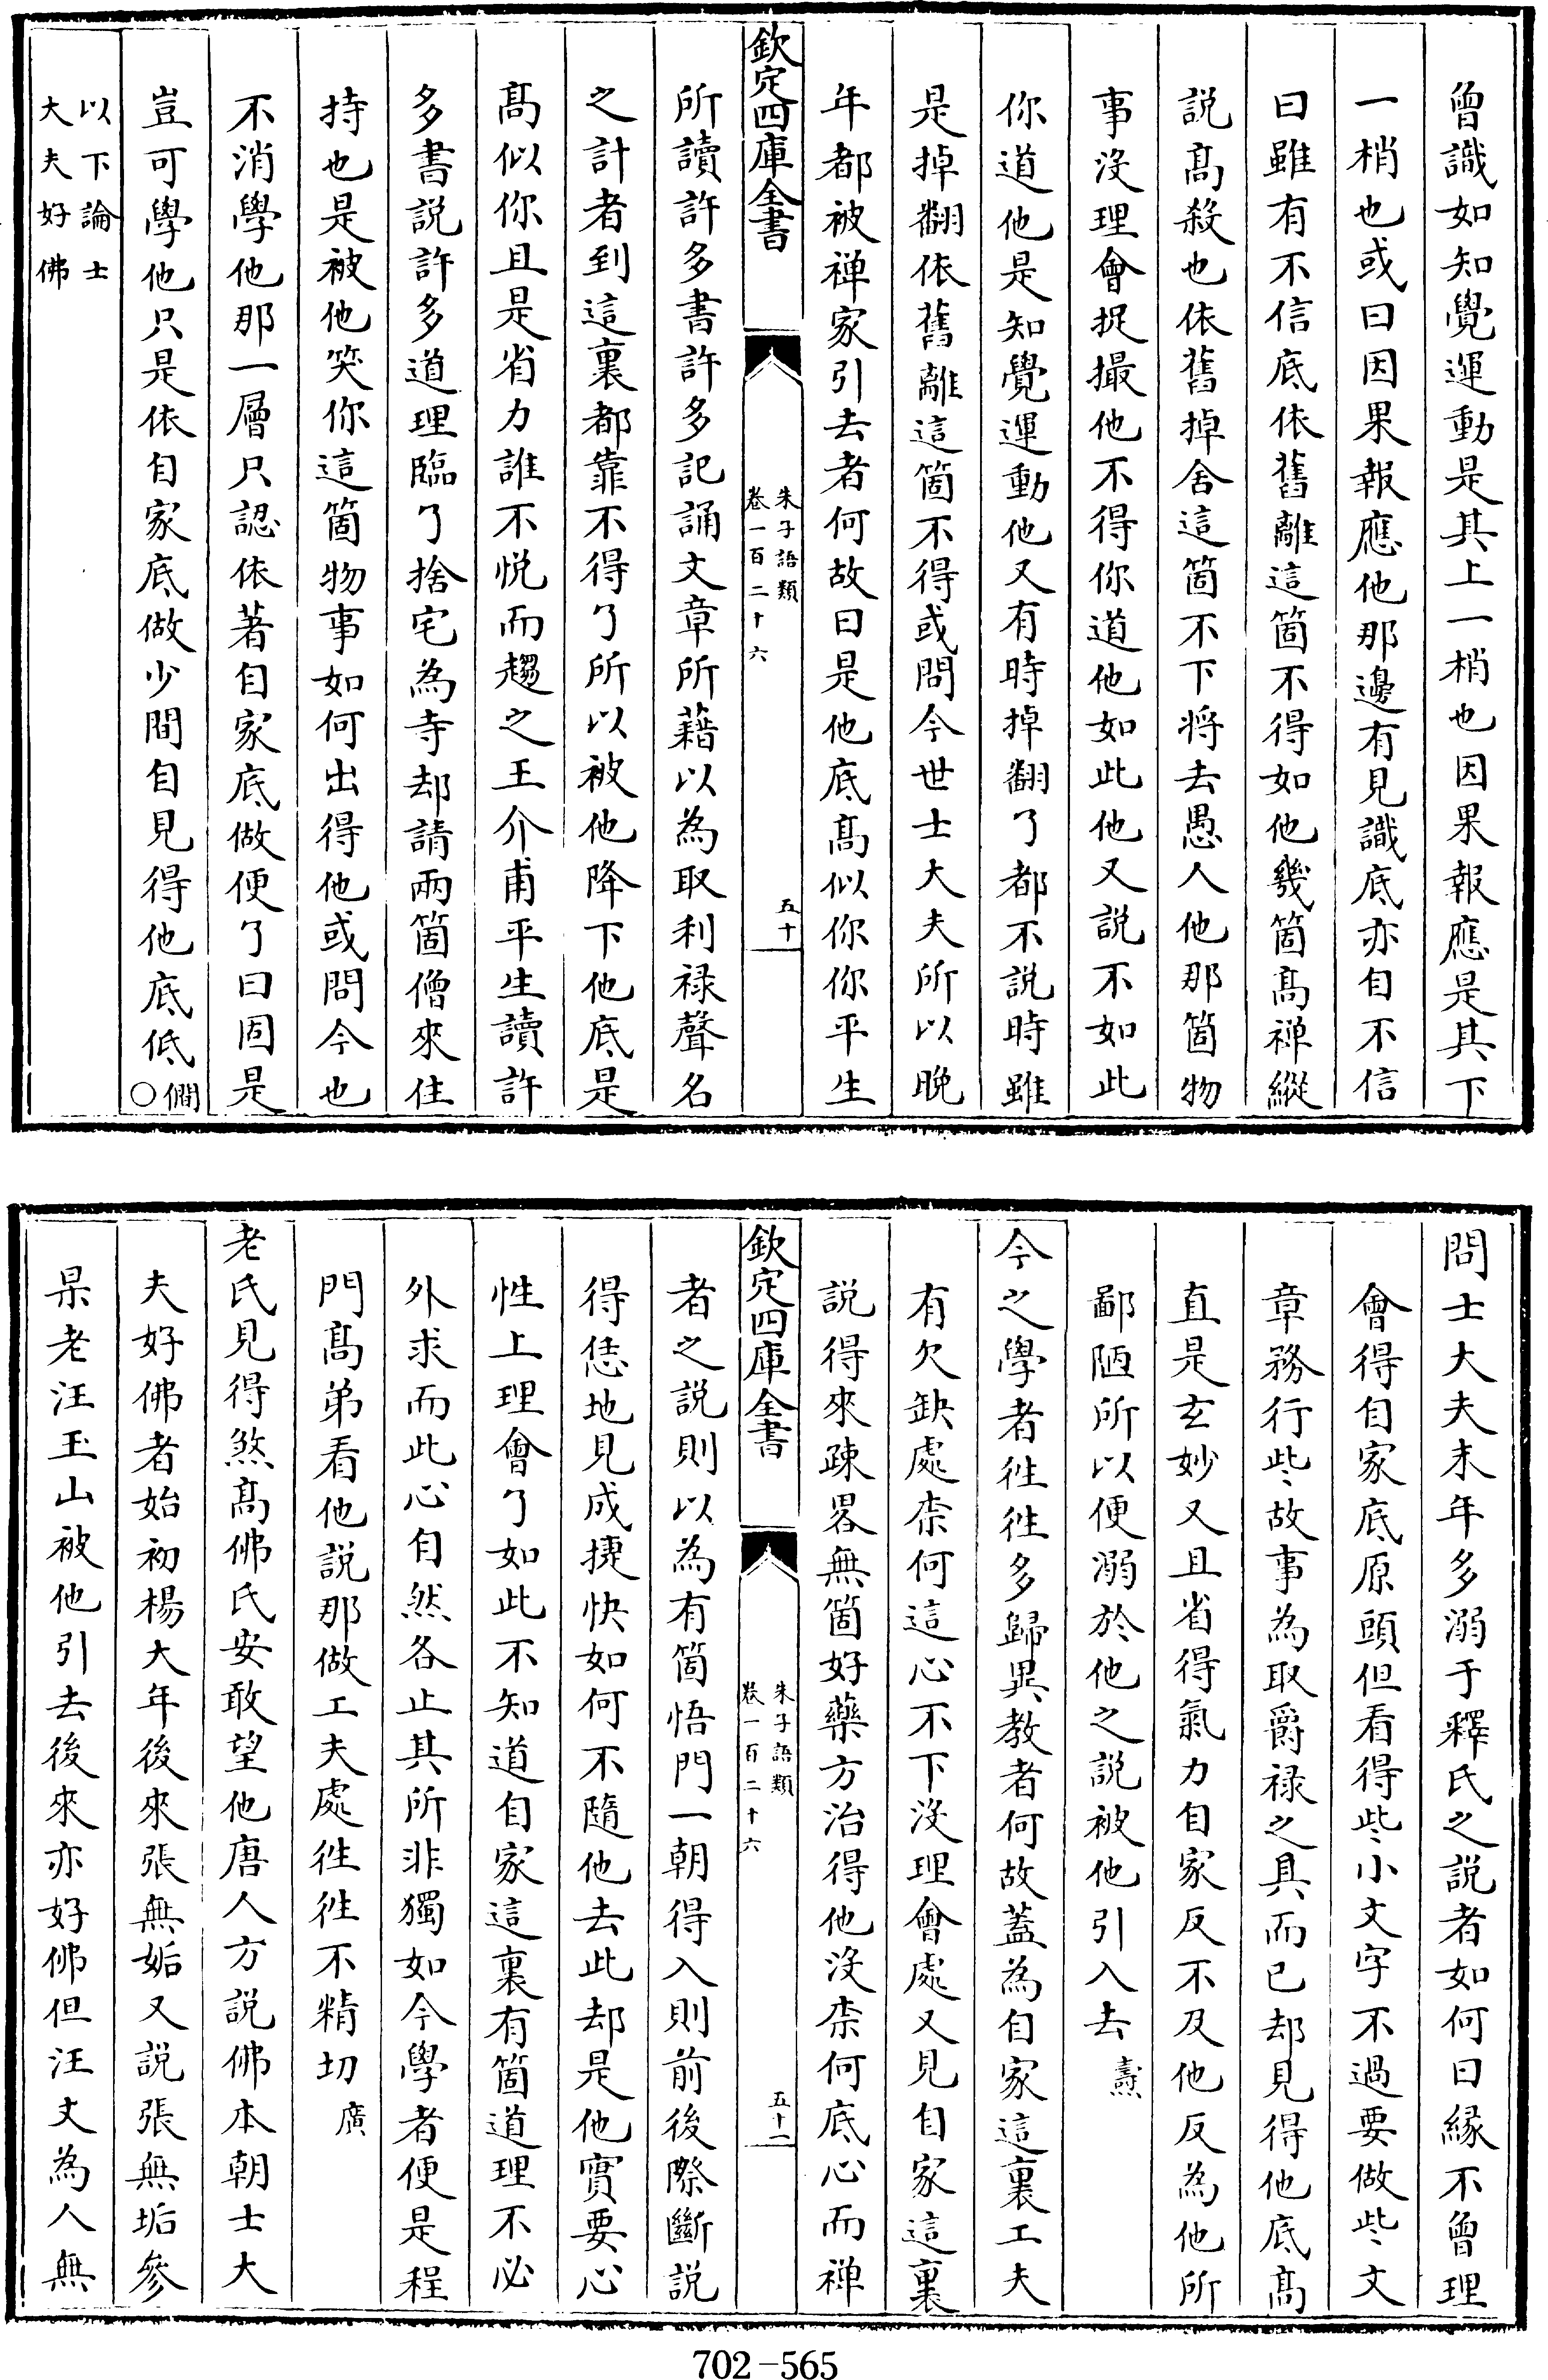 曾識如知覺運動是其上一梢也因果報應是其下
一梢也或曰因果報應他那邊有見識底亦自不信
曰雖有不信底依舊離這箇不得如他幾箇髙禅縱
説髙殺也依舊掉舍這箇不下将去愚人他那箇物
事沒理會捉撮他不得你道他如此他又説不如此
你道他是知覺運動他又有時掉翻了都不説時雖
是掉翻依舊離這箇不得或問今世士大夫所以晚
年都被禅家引去者何故曰是他底髙似你你平生
欽定四庫全書
朱子語類
卷一百二十六
五十
所讀許多書許多記誦文章所藉以為取利禄聲名
之計者到這裏都靠不得了所以被他降下他底是
髙似你且是省力誰不悦而趨之王介甫平生讀許
多書説許多道理臨了捨宅為寺却請兩箇僧來住
持也是被他笑你這箇物事如何出得他或問今也
不消學他那一層只認依著自家底做便了曰固是
豈可學他只是依自家底做少間自見得他底低 僩○
以下論士
大夫好佛
問士大夫末年多溺于釋氏之説者如何曰縁不曾理
會得自家底原頭但看得些小文字不過要做些文
章務行些故事為取爵禄之具而已却見得他底髙
直是玄妙又且省得氣力自家反不及他反為他所
鄙陋所以便溺於他之説被他引入去 燾
今之學者徃徃多歸異教者何故蓋為自家這裏工夫
有欠缺處柰何這心不下沒理會處又見自家這裏
説得來疎畧無箇好藥方治得他沒柰何底心而禅
欽定四庫全書
朱子語類
卷一百二十六
五十一
者之説則以為有箇悟門一朝得入則前後際斷説
得恁地見成捷快如何不隨他去此却是他實要心
性上理會了如此不知道自家這裏有箇道理不必
外求而此心自然各止其所非獨如今學者便是程
門髙弟看他説那做工夫處徃徃不精切 廣
老氏見得煞髙佛氏安敢望他唐人方説佛本朝士大
夫好佛者始初楊大年後來張無垢又説張無垢參
杲老汪玉山被他引去後來亦好佛但汪丈為人無
702－565